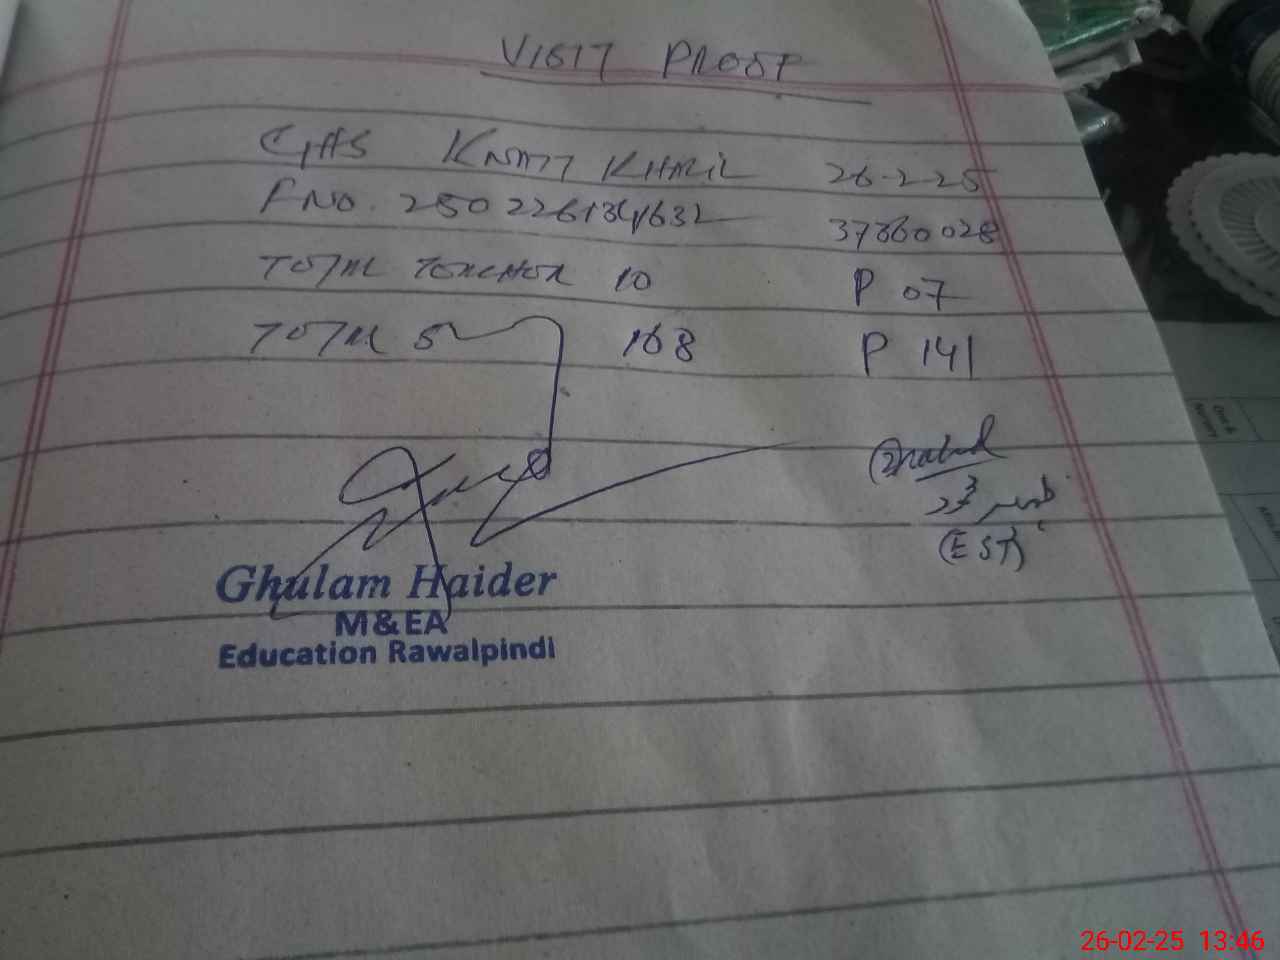 VISIT PROOF
GHS KNATT KHALIL 26-2-25
F NO. 250226134632 37360028
TOTAL TEACHER 10 P 07
TOTAL S 168 P 141
(EST)
Ghulam Haider
M&EA
Education Rawalpindi
26-02-25 13:46